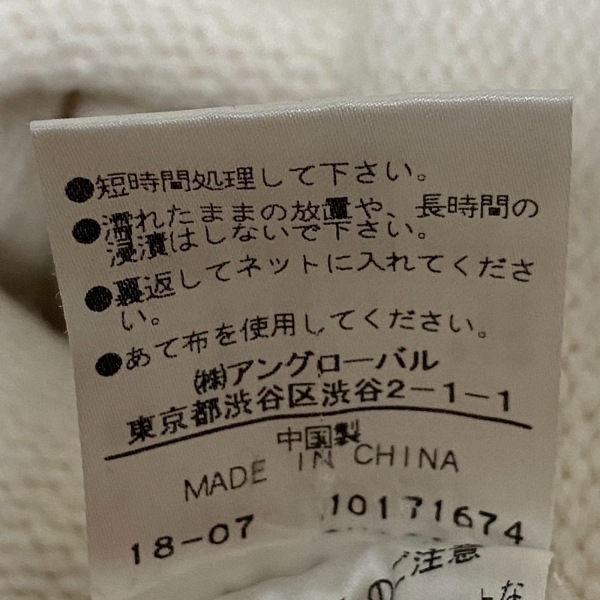 ●短時間処理して下さい。
●濡れたままの放置や、長時間の
浸漬はしないで下さい。
●裏返してネットに入れてくださ
い。
●あて布を使用してください。
㈱アングローバル
東京都渋谷区渋谷2-1-1
中国製
MADE IN CHINA
18-07 10171674
ご注意